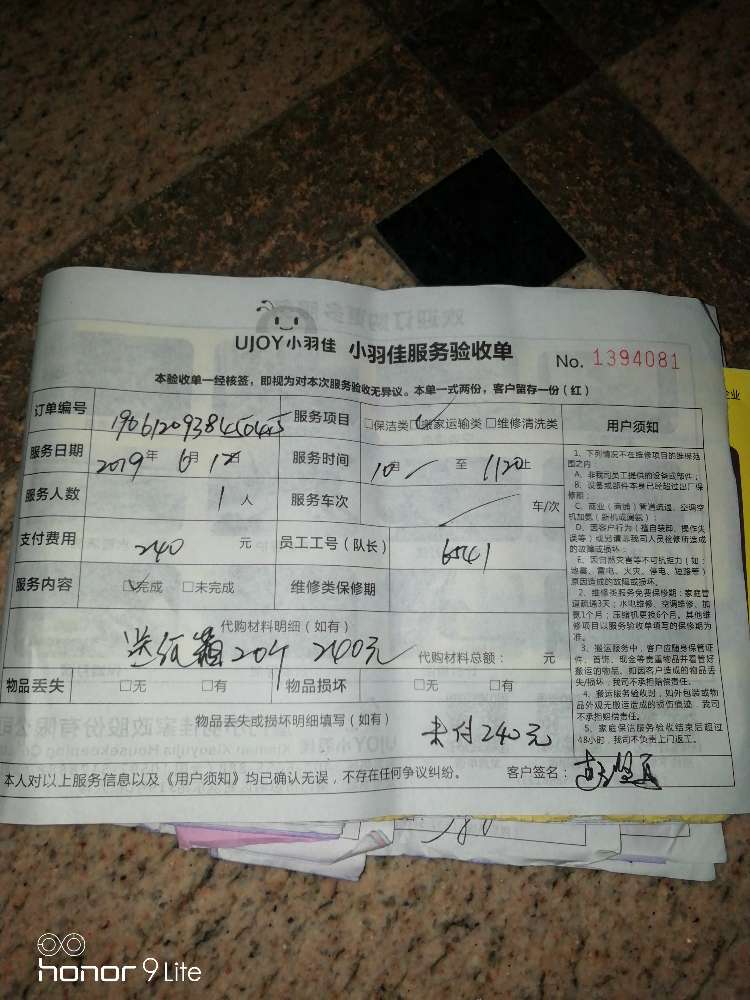 UJOY小羽佳 小羽佳服务验收单 No. 1394081
本验收单一经核签，即视为对本次服务验收无异议。本单一式两份，客户留存一份（红）
订单编号 服务项目 □保洁类 □搬家运输类 □维修清洗类 用户须知
服务日期 2019年6月12日 服务时间 至
服务人数 1人 服务车次 车/次
支付费用 240元 员工工号（队长） 6541
服务内容 □完成 □未完成 维修类保修期
代购材料明细（如有）
送纸箱20个 240元 代购材料总额： 元
物品丢失 □无 □有 物品损坏 □无 □有
物品丢失或损坏明细填写（如有）
未付240元
本人对以上服务信息以及《用户须知》均已确认无误，不存在任何争议纠纷。 客户签名：
1、下列情况不在维修项目的维保范
围之内
A、非我司员工提供的设备或部件；
B、设备或部件本身已经超过出厂保
修期；
C、商业（商铺）管道疏通，空调空
机加氨（新机或漏氨）；
D、因客户行为（擅自装卸、操作失
误等）或另请非我司人员检修所造成
的故障或损坏；
E、因自然灾害等不可抗拒力（如：
地震、雷电、火灾、停电、短路等）
原因造成的故障或损坏。
2、维修类服务免费保修期：家庭管
道疏通3天；水电维修、空调维修、加
氨1个月；压缩机更换6个月。其他维
修项目以服务验收单填写的保修期为
准。
3、搬运服务中，客户应随身保管证
件、首饰、现金等贵重物品并看管好
搬运的物品，如因客户造成的物品丢
失/损坏，我司不承担赔偿责任。
4、搬运服务验收时，如外包装或物
品外观无搬运造成的损伤痕迹，我司
不承担赔偿责任。
5、家庭保洁服务验收结束后超过
48小时，我司不负责上门返工。
honor 9 Lite